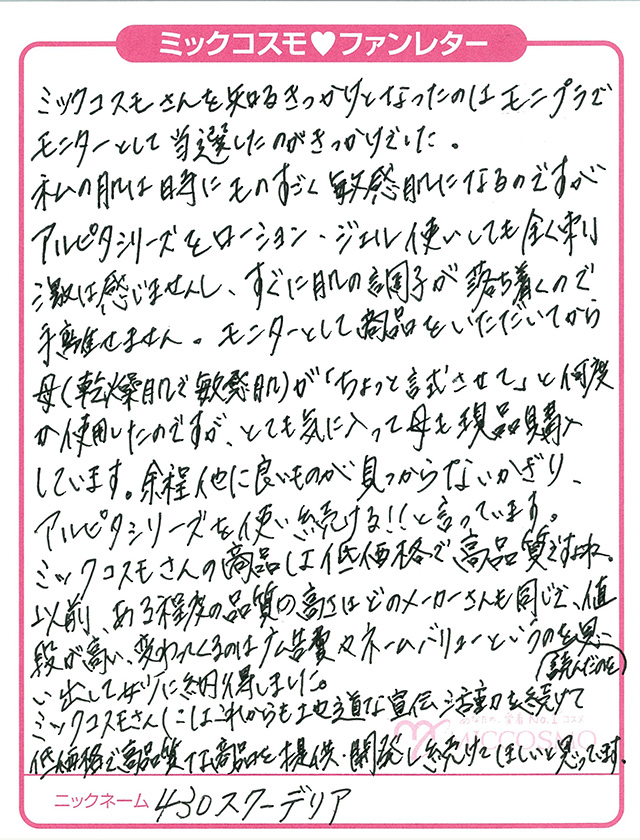 ミックコスモ♥ファンレター
ミックコスモさんを知るきっかけとなったのはモニプラで
モニターとして当選したのがきっかけでした。
私の肌は時にものすごく敏感肌になるのですが
アルピタシリーズをローション・ジェル使いしても全く刺
激は感じませんし、すぐに肌の調子が落ち着くので
手離せません。モニターとして商品をいただいてから
母(乾燥肌で敏感肌)が「ちょっと試させて」と何度
か使用したのですが、とても気に入って母も現品購入
しています。余程他に良いものが見つからないかぎり、
アルピタシリーズを使い続ける!!と言っています。
ミックコスモさんの商品は低価格で高品質ですよね。
以前、ある程度の品質の高さはどのメーカーさんも同じで、値
段が高い、変わってくるのは広告費やネームバリューというのを思
(読んだのを)
い出して妙に納得しました。
ミックコスモさんにはこれからも地道な宣伝活動を続けて
低価格で高品質な商品を提供・開発し続けてほしいと思っています。
あなたの、愛着No.1コスメ
MICCOSMO
ニックネーム 430スクーデリア